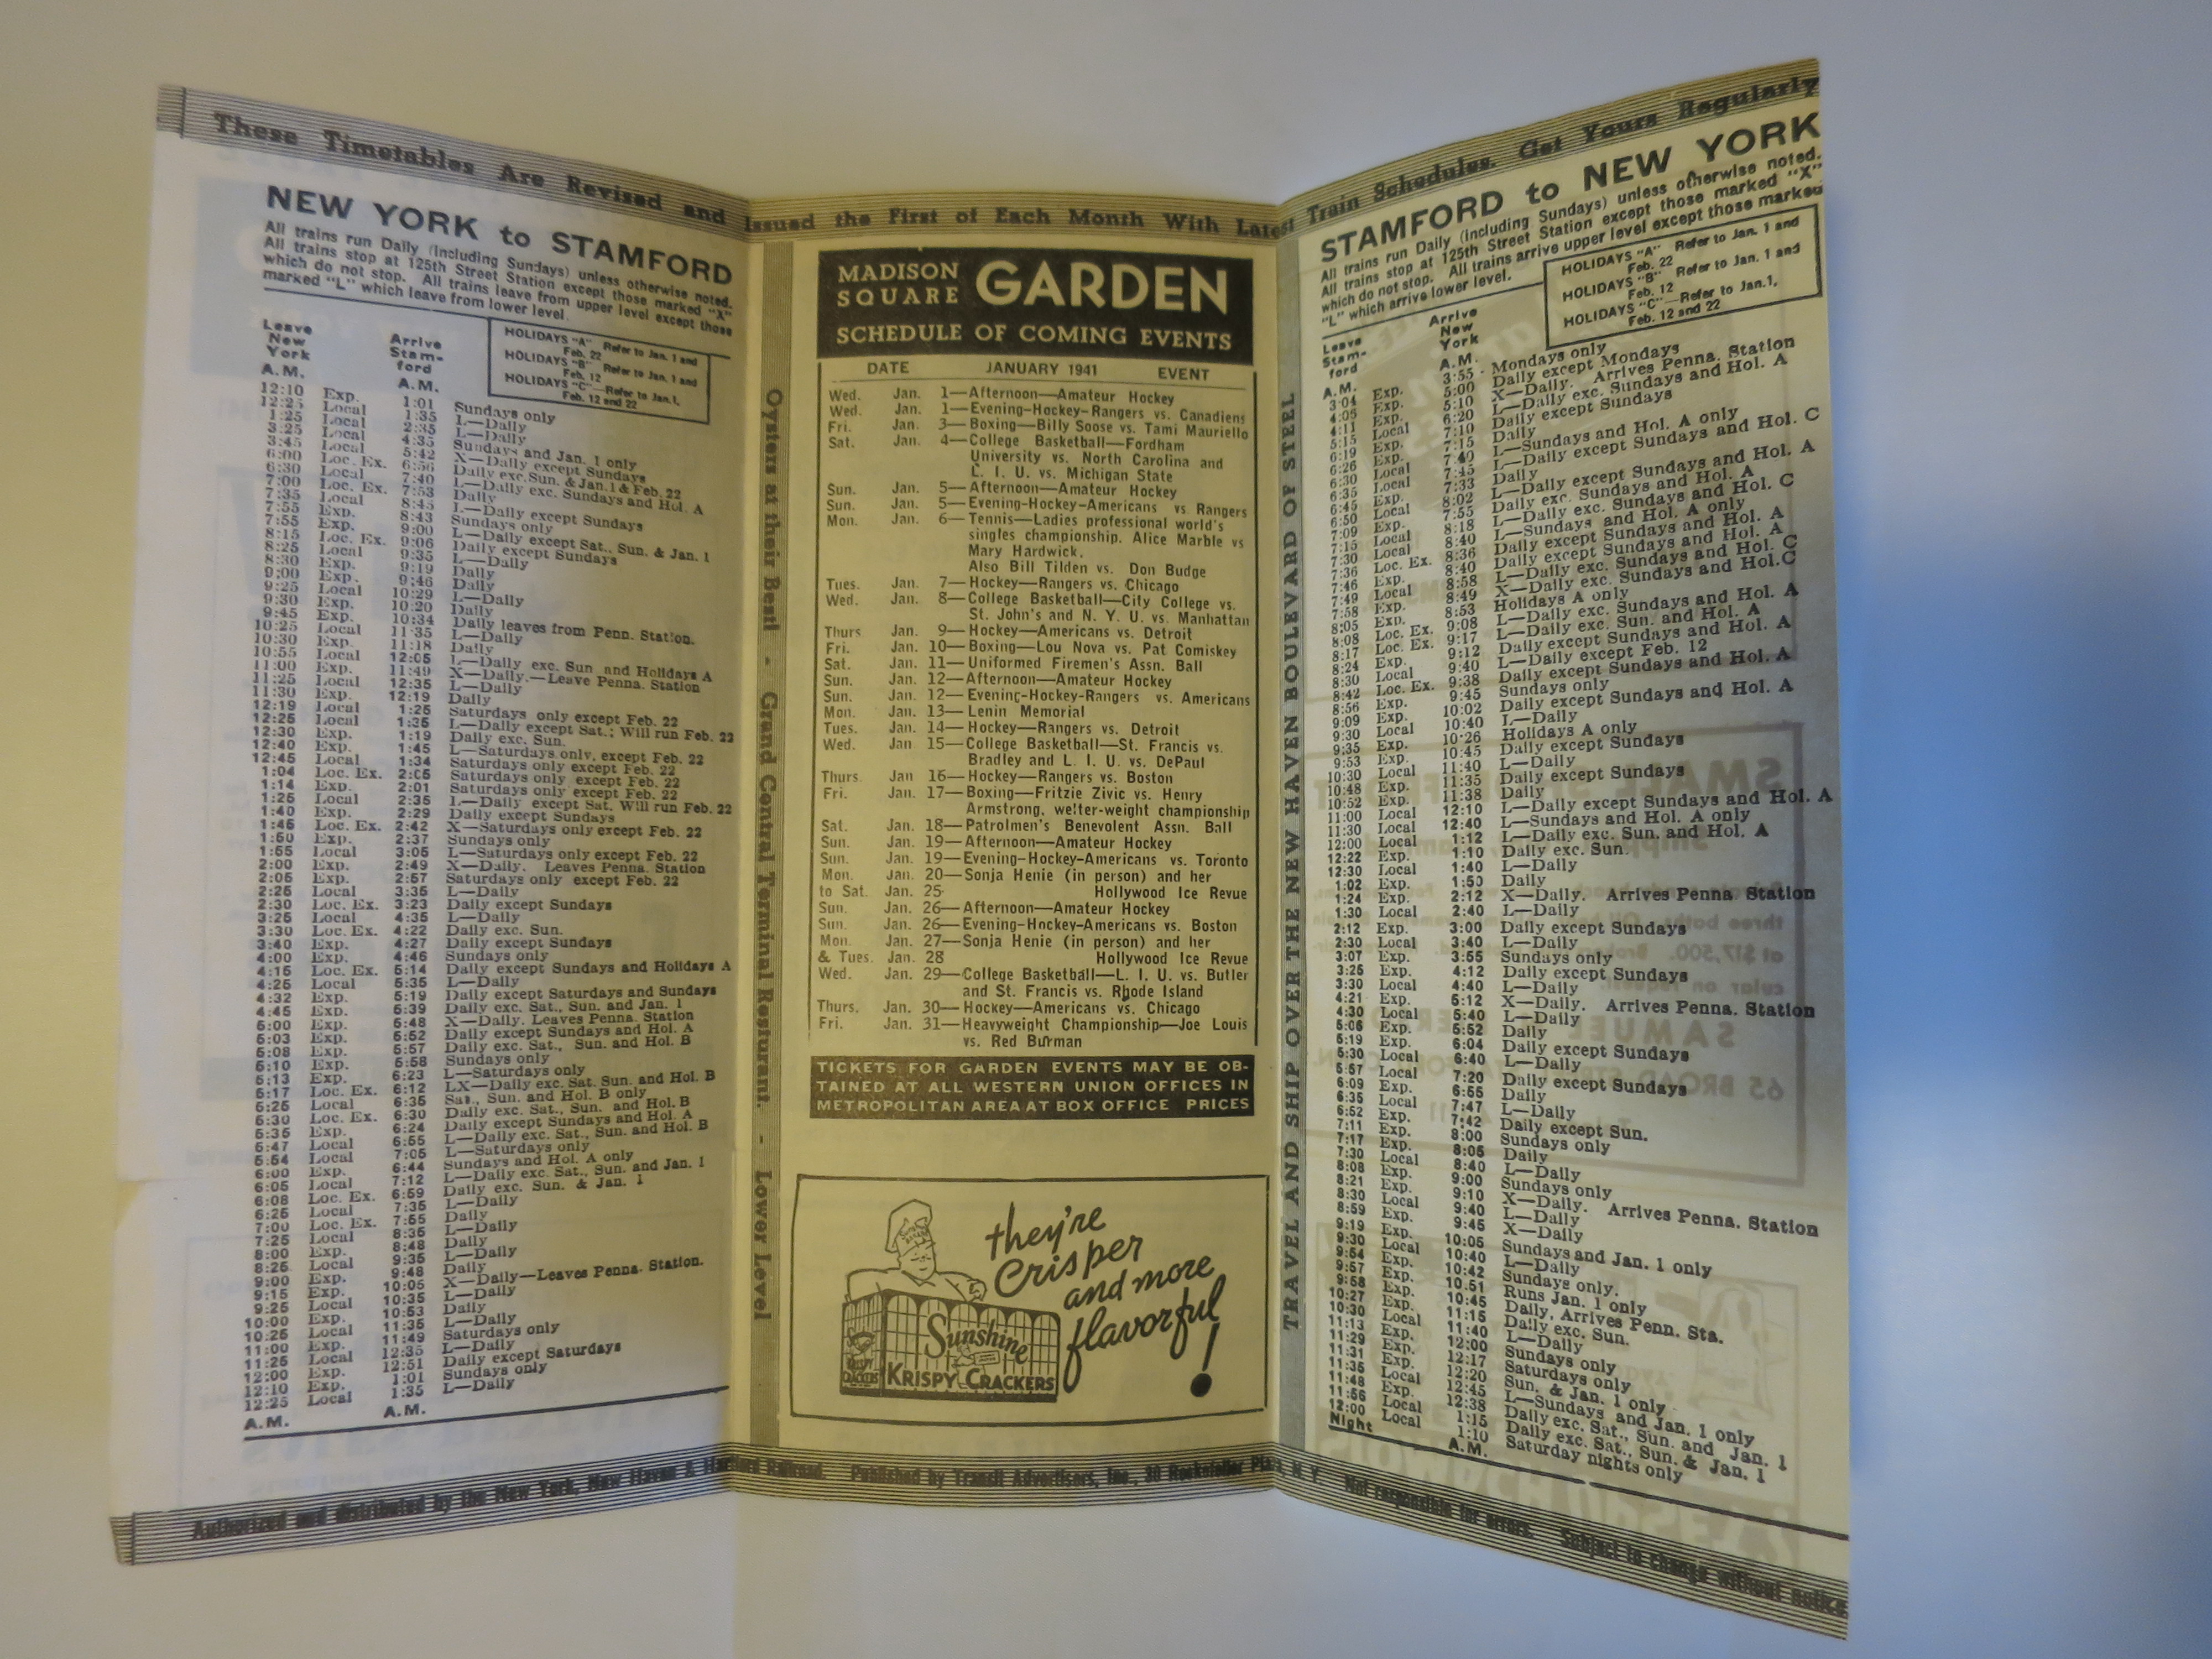 These Timetables Are Revised and Issued the First of Each Month With Latest Train Schedules. Get Yours Regularly
NEW YORK to STAMFORD
All trains run Daily (including Sundays) unless otherwise noted.
All trains stop at 125th Street Station except those marked "X"
which do not stop. All trains leave from upper level except those
marked "L" which leave from lower level.
HOLIDAYS "A" Refer to Jan. 1 and
Feb. 22
HOLIDAYS "B" Refer to Jan. 1 and
Feb. 12
HOLIDAYS "C"—Refer to Jan.1,
Feb. 12 and 22
Leave New York A.M.
Arrive Stam- ford A.M.
12:10 Exp. 1:01 Sundays only
12:25 Local 1:35 L—Daily
1:25 Local 2:35 L—Daily
3:25 Local 4:35 Sundays and Jan. 1 only
3:45 Local 5:42 X—Daily except Sundays
6:00 Loc. Ex. 6:56 Daily exc.Sun. & Jan.1 & Feb. 22
6:30 Local 7:40 L—Daily exc. Sundays and Hol. A
7:00 Loc. Ex. 7:53 Daily
7:35 Local 8:45 L—Daily except Sundays
7:55 Exp. 8:43 Sundays only
7:55 Exp. 9:00 L—Daily except Sat., Sun. & Jan. 1
8:15 Loc. Ex. 9:06 Daily except Sundays
8:25 Local 9:35 L—Daily
8:30 Exp. 9:19 Daily
9:00 Exp. 9:46 Daily
9:25 Local 10:29 L—Daily
9:30 Exp. 10:20 Daily
9:45 Exp. 10:34 Daily leaves from Penn. Station.
10:25 Local 11:35 L—Daily
10:30 Exp. 11:18 Daily
10:55 Local 12:05 L—Daily exc. Sun and Holidays A
11:00 Exp. 11:49 X—Daily.—Leave Penna. Station
11:25 Local 12:35 L—Daily
11:30 Exp. 12:19 Daily
12:19 Local 1:25 Saturdays only except Feb. 22
12:25 Local 1:35 L—Daily except Sat.; Will run Feb. 22
12:30 Exp. 1:19 Daily exc. Sun.
12:40 Exp. 1:45 L—Saturdays only, except Feb. 22
12:45 Local 1:34 Saturdays only except Feb. 22
1:04 Loc. Ex. 2:05 Saturdays only except Feb. 22
1:14 Exp. 2:01 Saturdays only except Feb. 22
1:25 Local 2:35 L—Daily except Sat. Will run Feb. 22
1:40 Exp. 2:29 Daily except Sundays
1:45 Loc. Ex. 2:42 X—Saturdays only except Feb. 22
1:50 Exp. 2:37 Sundays only
1:55 Local 3:05 L—Saturdays only except Feb. 22
2:00 Exp. 2:49 X—Daily. Leaves Penna. Station
2:05 Exp. 2:57 Saturdays only except Feb. 22
2:25 Local 3:35 L—Daily
2:30 Loc. Ex. 3:23 Daily except Sundays
3:25 Local 4:35 L—Daily
3:30 Loc. Ex. 4:22 Daily exc. Sun.
3:40 Exp. 4:27 Daily except Sundays
4:00 Exp. 4:46 Sundays only
4:15 Loc. Ex. 5:14 Daily except Sundays and Holidays A
4:25 Local 5:35 L—Daily
4:32 Exp. 5:19 Daily except Saturdays and Sundays
4:45 Exp. 5:39 Daily exc. Sat., Sun. and Jan. 1
5:00 Exp. 5:48 X—Daily. Leaves Penna. Station
5:03 Exp. 5:52 Daily except Sundays and Hol. A
5:08 Exp. 5:57 Daily exc. Sat., Sun. and Hol. B
5:10 Exp. 5:58 Sundays only
5:13 Exp. 6:23 L—Saturdays only
5:17 Loc. Ex. 6:12 LX—Daily exc. Sat. Sun. and Hol. B
5:25 Local 6:35 Sat., Sun. and Hol. B only
5:30 Loc. Ex. 6:30 Daily exc. Sat., Sun. and Hol. B
5:35 Exp. 6:24 Daily except Sundays and Hol. A
5:47 Local 6:55 L—Daily exc. Sat., Sun. and Hol. B
5:54 Local 7:05 L—Saturdays only
6:00 Exp. 6:44 Sundays and Hol. A only
6:05 Local 7:12 L—Daily exc. Sat., Sun. and Jan. 1
6:08 Loc. Ex. 6:59 Daily exc. Sun. & Jan. 1
6:25 Local 7:35 L—Daily
7:00 Loc. Ex. 7:55 Daily
7:25 Local 8:35 L—Daily
8:00 Exp. 8:48 Daily
8:25 Local 9:35 L—Daily
9:00 Exp. 9:48 Daily
9:15 Exp. 10:05 X—Daily—Leaves Penna. Station.
9:25 Local 10:35 L—Daily
10:00 Exp. 10:53 Daily
10:25 Local 11:35 L—Daily
11:00 Exp. 11:49 Saturdays only
11:25 Local 12:35 L—Daily
12:00 Exp. 12:51 Daily except Saturdays
12:10 Exp. 1:01 Sundays only
12:25 Local 1:35 L—Daily
A.M. A.M.
Oysters at their Best! - Grand Central Terminal Restaurant. - Lower Level
MADISON SQUARE GARDEN
SCHEDULE OF COMING EVENTS
DATE JANUARY 1941 EVENT
Wed. Jan. 1—Afternoon—Amateur Hockey
Wed. Jan. 1—Evening-Hockey-Rangers vs. Canadiens
Fri. Jan. 3—Boxing—Billy Soose vs. Tami Mauriello
Sat. Jan. 4—College Basketball—Fordham
University vs. North Carolina and
L. I. U. vs. Michigan State
Sun. Jan. 5—Afternoon—Amateur Hockey
Sun. Jan. 5—Evening-Hockey-Americans vs Rangers
Mon. Jan. 6—Tennis—Ladies professional world's
singles championship. Alice Marble vs
Mary Hardwick.
Also Bill Tilden vs. Don Budge
Tues. Jan. 7—Hockey—Rangers vs. Chicago
Wed. Jan. 8—College Basketball—City College vs.
St. John's and N. Y. U. vs. Manhattan
Thurs. Jan. 9—Hockey—Americans vs. Detroit
Fri. Jan. 10—Boxing—Lou Nova vs. Pat Comiskey
Sat. Jan. 11—Uniformed Firemen's Assn. Ball
Sun. Jan. 12—Afternoon—Amateur Hockey
Sun. Jan. 12—Evening-Hockey-Rangers vs. Americans
Mon. Jan. 13—Lenin Memorial
Tues. Jan. 14—Hockey—Rangers vs. Detroit
Wed. Jan 15—College Basketball—St. Francis vs.
Bradley and L. I. U. vs. DePaul
Thurs. Jan 16—Hockey—Rangers vs. Boston
Fri. Jan. 17—Boxing—Fritzie Zivic vs. Henry
Armstrong, welter-weight championship
Sat. Jan. 18—Patrolmen's Benevolent Assn. Ball
Sun. Jan. 19—Afternoon—Amateur Hockey
Sun. Jan. 19—Evening-Hockey-Americans vs. Toronto
Mon. Jan. 20—Sonja Henie (in person) and her
to Sat. Jan. 25 Hollywood Ice Revue
Sun. Jan. 26—Afternoon—Amateur Hockey
Sun. Jan. 26—Evening-Hockey-Americans vs. Boston
Mon. Jan. 27—Sonja Henie (in person) and her
& Tues. Jan. 28 Hollywood Ice Revue
Wed. Jan. 29—College Basketball—L. I. U. vs. Butler
and St. Francis vs. Rhode Island
Thurs. Jan. 30—Hockey—Americans vs. Chicago
Fri. Jan. 31—Heavyweight Championship—Joe Louis
vs. Red Burman
TICKETS FOR GARDEN EVENTS MAY BE OB-
TAINED AT ALL WESTERN UNION OFFICES IN
METROPOLITAN AREA AT BOX OFFICE PRICES
they're
Crisper
and more
flavorful!
Sunshine
KRISPY CRACKERS
TRAVEL AND SHIP OVER THE NEW HAVEN BOULEVARD OF STEEL
STAMFORD to NEW YORK
All trains run Daily (including Sundays) unless otherwise noted.
All trains stop at 125th Street Station except those marked "X"
which do not stop. All trains arrive upper level except those marked
"L" which arrive lower level.
HOLIDAYS "A" Refer to Jan. 1 and
Feb. 22
HOLIDAYS "B" Refer to Jan. 1 and
Feb. 12
HOLIDAYS "C"—Refer to Jan.1,
Feb. 12 and 22
Leave Stam- ford A.M.
Arrive New York A.M.
3:04 Exp. 3:55 Mondays only
4:05 Exp. 5:00 Daily except Mondays
4:11 Exp. 5:10 X—Daily. Arrives Penna. Station
5:15 Local 6:20 L—Daily exc. Sundays and Hol. A
6:19 Exp. 7:10 Daily except Sundays
6:26 Exp. 7:15 Daily
6:30 Local 7:40 L—Sundays and Hol. A only
6:35 Local 7:45 L—Daily except Sundays and Hol. C
6:45 Exp. 7:33 Daily
6:50 Local 8:02 L—Daily except Sundays and Hol. A
7:09 Exp. 7:55 Daily exc. Sundays and Hol. A
7:15 Local 8:18 L—Daily exc. Sundays and Hol. C
7:30 Local 8:40 L—Sundays and Hol. A only
7:36 Loc. Ex. 8:36 Daily except Sundays and Hol. A
7:46 Exp. 8:40 Daily except Sundays and Hol. A
7:49 Local 8:58 L—Daily exc. Sundays and Hol. C
7:58 Exp. 8:49 X—Daily exc. Sundays and Hol.C
8:05 Exp. 8:53 Holidays A only
8:08 Loc. Ex. 9:08 L—Daily exc. Sundays and Hol. A
8:17 Loc. Ex. 9:17 L—Daily exc. Sun. and Hol. A
8:24 Exp. 9:12 Daily except Sundays and Hol. A
8:30 Local 9:40 L—Daily except Feb. 12
8:42 Loc. Ex. 9:38 Daily except Sundays and Hol. A
8:56 Exp. 9:45 Sundays only
9:09 Exp. 10:02 Daily except Sundays and Hol. A
9:30 Local 10:40 L—Daily
9:35 Exp. 10:26 Holidays A only
9:53 Exp. 10:45 Daily except Sundays
10:30 Local 11:40 L—Daily
10:48 Exp. 11:35 Daily except Sundays
10:52 Exp. 11:38 Daily
11:00 Local 12:10 L—Daily except Sundays and Hol. A
11:30 Local 12:40 L—Sundays and Hol. A only
12:00 Local 1:12 L—Daily exc. Sun. and Hol. A
12:22 Exp. 1:10 Daily exc. Sun.
12:30 Local 1:40 L—Daily
1:02 Exp. 1:50 Daily
1:24 Exp. 2:12 X—Daily. Arrives Penna. Station
1:30 Local 2:40 L—Daily
2:12 Exp. 3:00 Daily except Sundays
2:30 Local 3:40 L—Daily
3:07 Exp. 3:55 Sundays only
3:25 Exp. 4:12 Daily except Sundays
3:30 Local 4:40 L—Daily
4:21 Exp. 5:12 X—Daily. Arrives Penna. Station
4:30 Local 5:40 L—Daily
5:06 Exp. 5:52 Daily
5:19 Exp. 6:04 Daily except Sundays
5:30 Local 6:40 L—Daily
5:57 Local 7:20 Daily except Sundays
6:09 Exp. 6:55 Daily
6:35 Local 7:47 L—Daily
6:52 Exp. 7:42 Daily except Sun.
7:11 Exp. 8:00 Sundays only
7:17 Exp. 8:05 Daily
7:30 Local 8:40 L—Daily
8:08 Exp. 9:00 Sundays only
8:21 Exp. 9:10 X—Daily. Arrives Penna. Station
8:30 Local 9:40 L—Daily
8:59 Exp. 9:45 X—Daily
9:19 Exp. 10:05 Sundays and Jan. 1 only
9:30 Local 10:40 L—Daily
9:54 Exp. 10:42 Sundays only.
9:57 Exp. 10.51 Runs Jan. 1 only
9:58 Exp. 10:45 Daily, Arrives Penn. Sta.
10:27 Exp. 11:15 Daily exc. Sun.
10:30 Local 11:40 L—Daily
11:13 Exp. 12:00 Sundays only
11:29 Exp. 12:17 Saturdays only
11:31 Exp. 12:20 Sun. & Jan. 1 only
11:35 Local 12:45 L—Sundays and Jan. 1 only
11:48 Exp. 12:38 Daily exc. Sat., Sun. and Jan. 1
11:56 Local 1:15 Daily exc. Sat., Sun. & Jan. 1
12:00 Local 1:10 Saturday nights only
Night A.M.
Authorized and distributed by the New York, New Haven & Hartford Railroad. Published by Transit Advertisers, Inc., 30 Rockefeller Plaza, N. Y. Not responsible for errors. Subject to change without notice